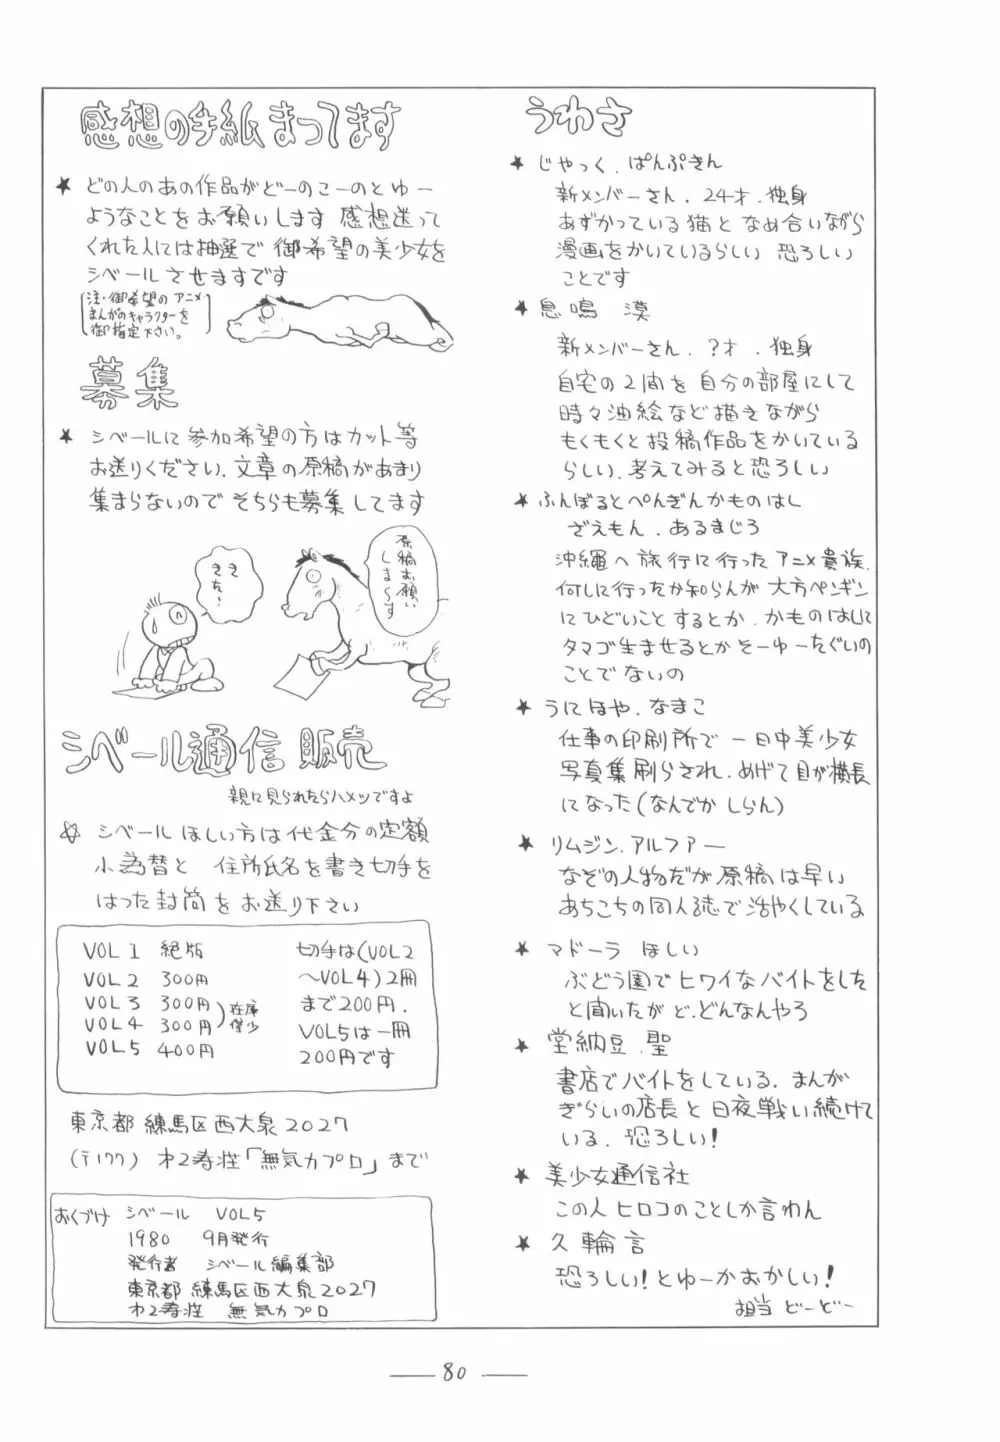 感想の手紙まってます
★ どの人のあの作品がどーのこーのとゆー
ようなことをお願いします 感想送って
くれた人には抽選で 御希望の美少女を
シベールさせますです
注・御希望のアニメ
まんがのキャラクターを
御指定下さい。
募集
★ シベールに参加希望の方はカット等
お送りください.文章の原稿があまり
集まらないので そちらも募集してます
きき
きた〜
原稿お願い
しま〜す
シベール通信販売
親に見られたらハメツですよ
☆ シベール ほしい方は代金分の定額
小為替と 住所氏名を書き切手を
はった封筒をお送り下さい
VOL1 絶版
VOL2 300円
VOL3 300円
VOL4 300円
在庫
僅少
VOL5 400円
切手は(VOL2
〜VOL4)2冊
まで200円.
VOL5は一冊
200円です
東京都練馬区西大泉2027
(〒177) 才2寿荘「無気力プロ」まで
おくづけ シベール VOL5
1980 9月発行
発行者 シベール編集部
東京都 練馬区西大泉2027
才2寿荘 無気力プロ
うわさ
★ じゃっく.ぱんぷきん
新メンバーさん.24才.独身
あずかっている猫と なめ合いながら
漫画をかいているらしい 恐ろしい
ことです
★ 息鳴 漠
新メンバーさん.?才.独身
自宅の2間を自分の部屋にして
時々油絵など描きながら
もくもくと投稿作品をかいている
らしい.考えてみると恐ろしい
★ ふんぼるとぺんぎんかものはし
ざえもん.あるまじろ
沖縄へ旅行に行ったアニメ貴族.
何しに行ったか知らんが大方ペンギン
にひどいことするとか.かものはしに
タマゴ生ませるとかそーゆーたぐいの
ことでないの
★ うにほや.なまこ
仕事の印刷所で一日中美少女
写真集刷らされ.あげて目が横長
になった(なんでかしらん)
★ リムジン.アルファー
なぞの人物だが原稿は早い
あちこちの同人誌で活やくしている
★ マドーラ ほしい
ぶどう園でヒワイなバイトをした
と聞いたがど.どんなんやろ
★ 堂納豆.聖
書店でバイトをしている.まんが
ぎらいの店長と日夜戦い続けて
いる.恐ろしい!
★ 美少女通信社
この人ヒロコのことしか言わん
★ 久輪言
恐ろしい!とゆーかおかしい!
担当 どーどー
— 80 —